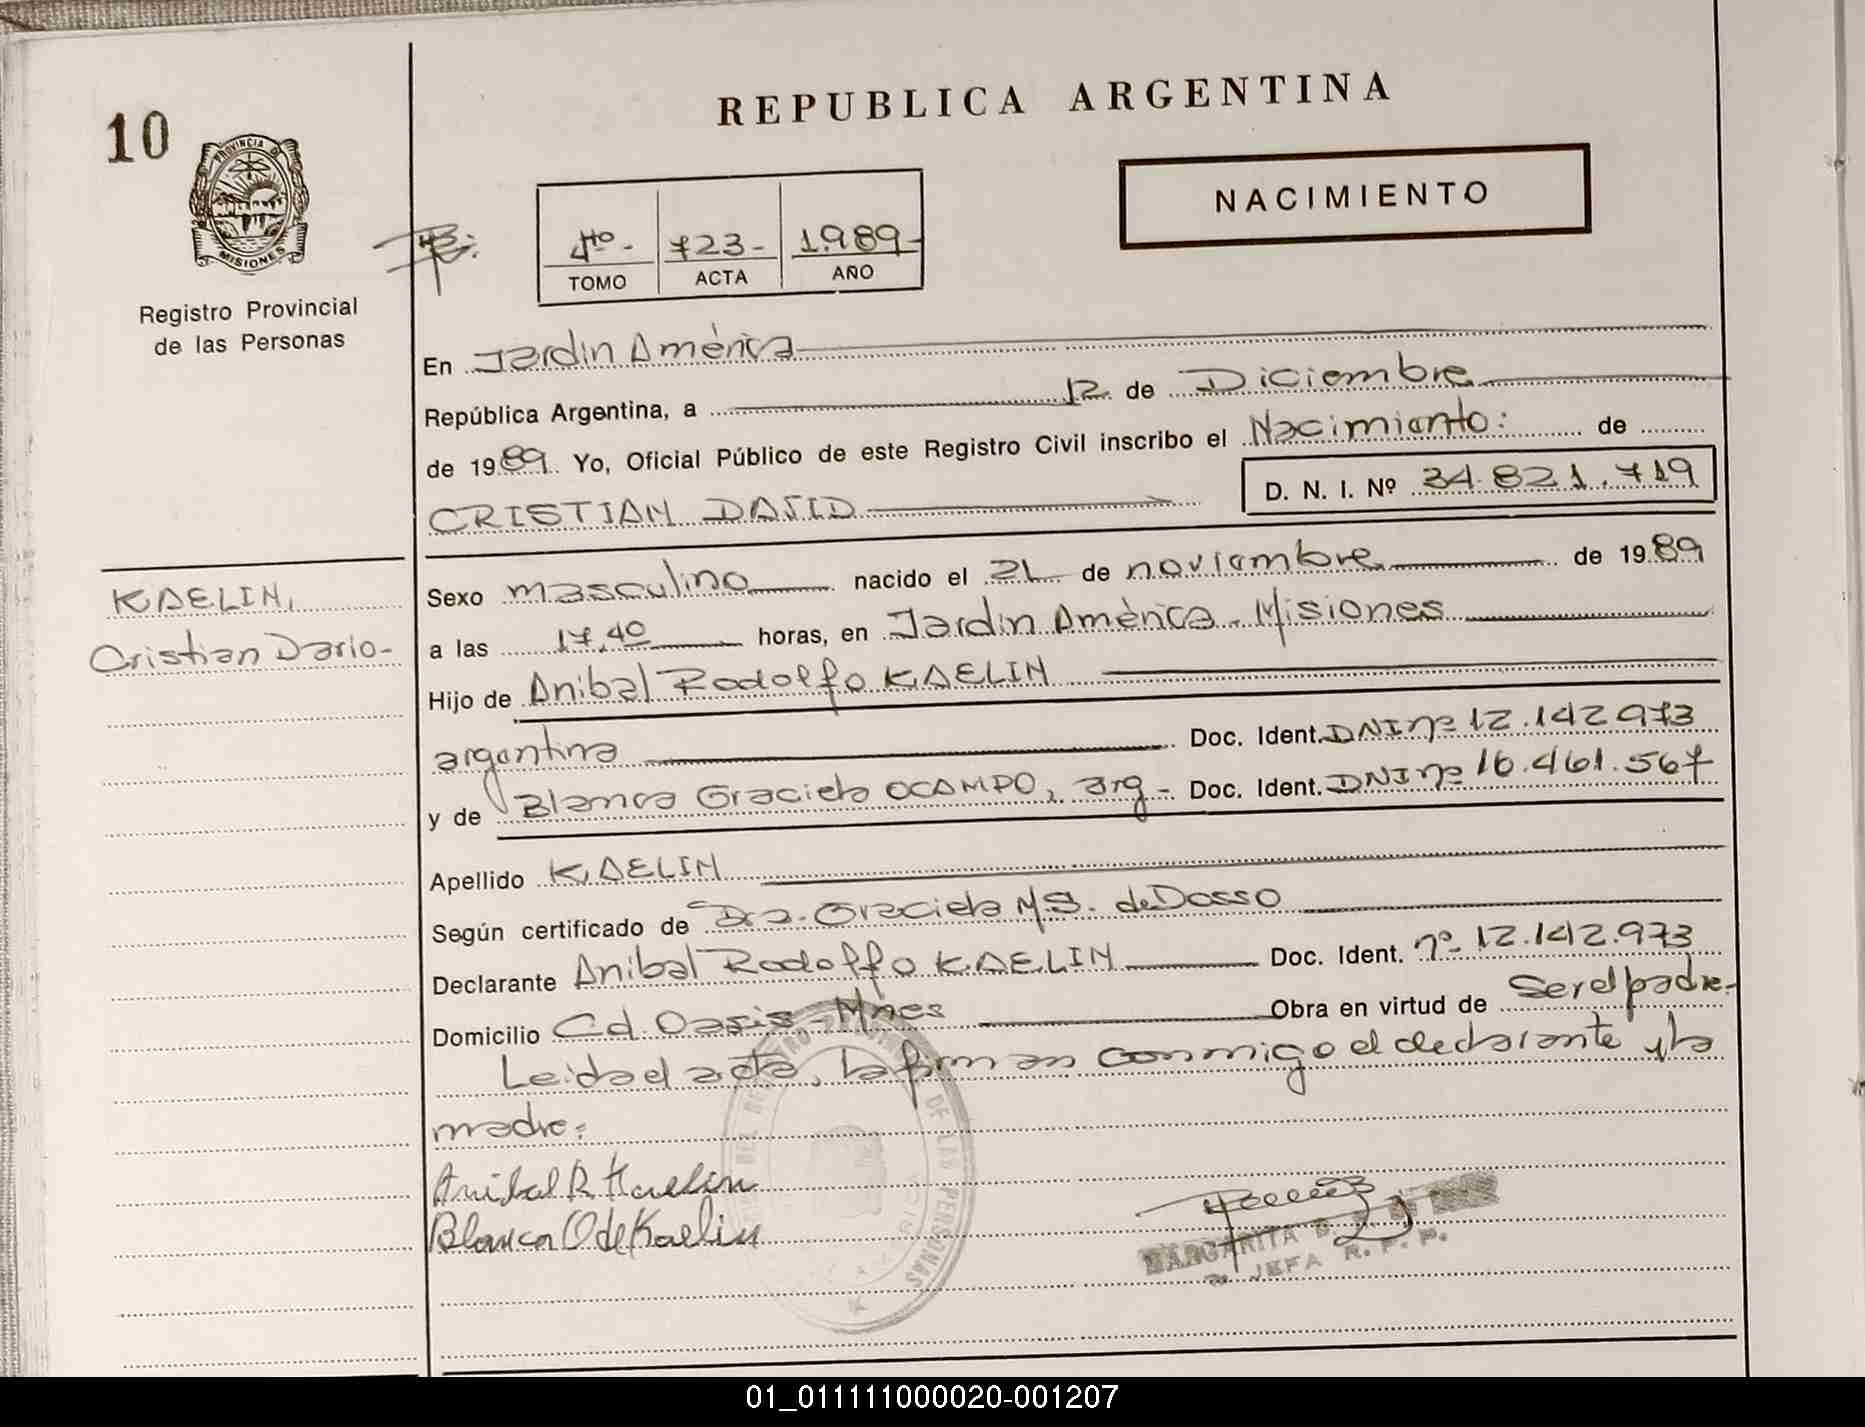 10
REPUBLICA ARGENTINA
PROVINCIA DE
MISIONES
Registro Provincial
de las Personas
NACIMIENTO
4to - 723 - 1.989 -
TOMO ACTA AÑO
En Jardin América
República Argentina, a 12 de Diciembre
de 1989 Yo, Oficial Público de este Registro Civil inscribo el Nacimiento: de
CRISTIAN DAVID D. N. I. Nº 34.821.719
KAELIN,
Cristian Dario-
Sexo masculino nacido el 21 de noviembre de 1989
a las 17,40 horas, en Jardin América - Misiones
Hijo de Anibal Rodolfo KAELIN
argentina Doc. Ident. DNI nº 12.142.973
y de Blanca Graciela OCAMPO, arg - Doc. Ident. DNI nº 16.461.567
Apellido KAELIN
Según certificado de Dra. Graciela M.S. de Dosso
Declarante Anibal Rodolfo KAELIN Doc. Ident. nº 12.142.973
Domicilio Cd. Oasis - Mnes Obra en virtud de Ser el padre-
Leida el acta, la firman conmigo el declarante y la
madre:
Anibal R Kaelin
Blanca O de Kaelin
DE LAS PERSONAS
MARGARITA
JEFA R. P. P.
01_011111000020-001207